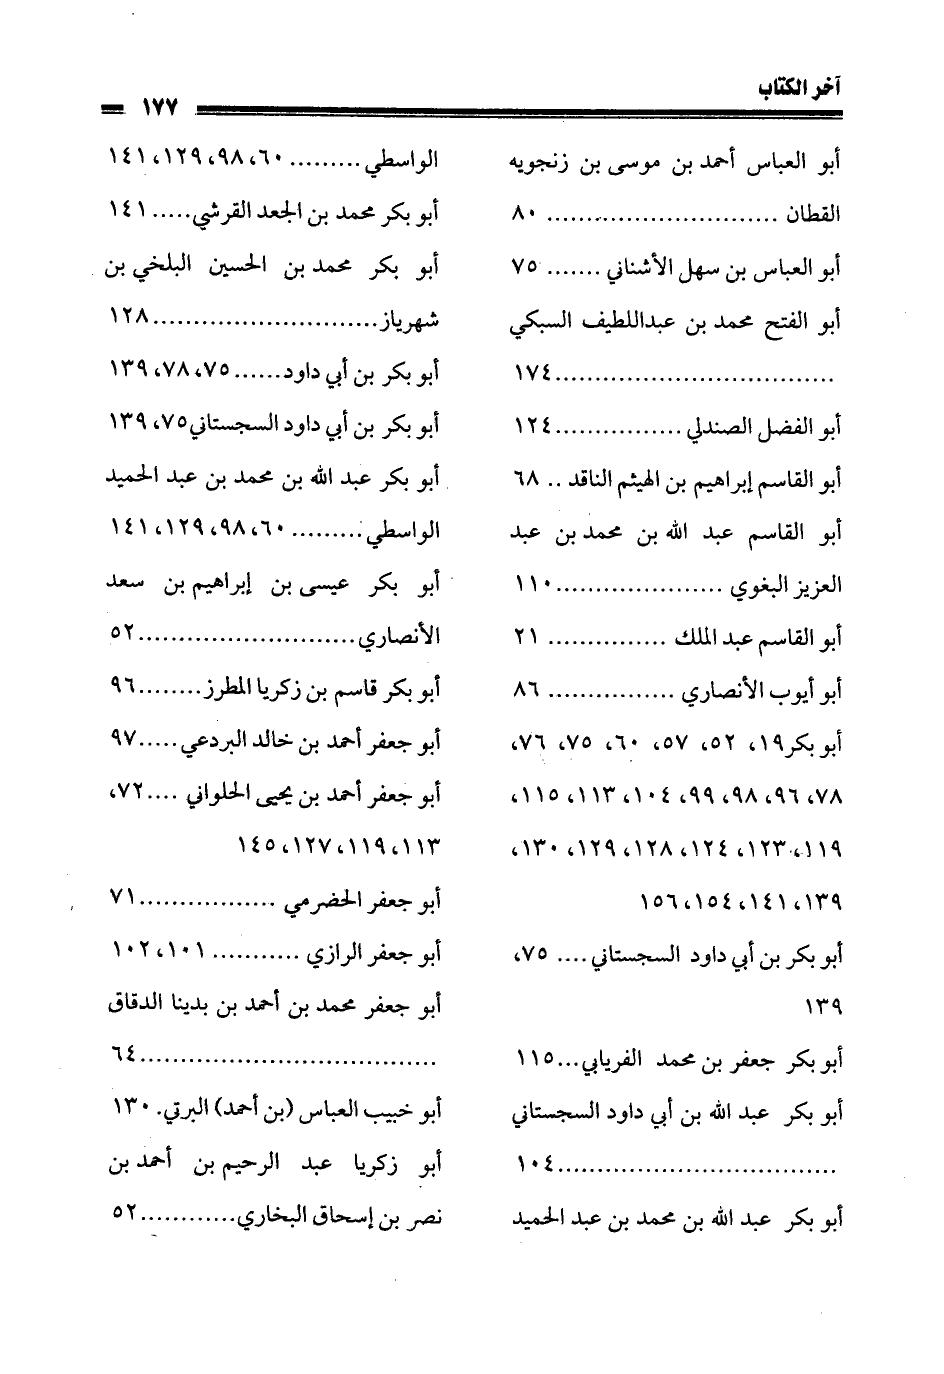 آخر الكتاب
١٧٧
أبو العباس أحمد بن موسى بن زنجويه
القطان ............................. ٨٠
أبو العباس بن سهل الأشناني ....... ٧٥
أبو الفتح محمد بن عبداللطيف السبكي
...................................١٧٤
أبو الفضل الصندلي ................١٢٤
أبو القاسم إبراهيم بن الهيثم الناقد .. ٦٨
أبو القاسم عبد الله بن محمد بن عبد
العزيز البغوي .....................١١٠
أبو القاسم عبد الملك ............... ٢١
أبو أيوب الأنصاري ................ ٨٦
أبو بكر١٩، ٥٢، ٥٧، ٦٠، ٧٥، ٧٦،
٧٨، ٩٦، ٩٨، ٩٩، ١٠٤، ١١٣، ١١٥،
١١٩، ١٢٣، ١٢٤، ١٢٨، ١٢٩، ١٣٠،
١٣٩، ١٤١، ١٥٤، ١٥٦
أبو بكر بن أبي داود السجستاني .... ٧٥،
١٣٩
أبو بكر جعفر بن محمد الفريابي...١١٥
أبو بكر عبد الله بن أبي داود السجستاني
...................................١٠٤
أبو بكر عبد الله بن محمد بن عبد الحميد
الواسطي ......... ٦٠، ٩٨، ١٢٩، ١٤١
أبو بكر محمد بن الجعد القرشي..... ١٤١
أبو بكر محمد بن الحسين البلخي بن
شهرياز............................١٢٨
أبو بكر بن أبي داود......٧٥، ٧٨، ١٣٩
أبو بكر بن أبي داود السجستاني٧٥، ١٣٩
أبو بكر عبد الله بن محمد بن عبد الحميد
الواسطي ......... ٦٠، ٩٨، ١٢٩، ١٤١
أبو بكر عيسى بن إبراهيم بن سعد
الأنصاري...........................٥٢
أبو بكر قاسم بن زكريا المطرز........٩٦
أبو جعفر أحمد بن خالد البردعي.....٩٧
أبو جعفر أحمد بن يحيى الحلواني ....٧٢،
١١٣، ١١٩، ١٢٧، ١٤٥
أبو جعفر الحضرمي .................٧١
أبو جعفر الرازي ........... ١٠١، ١٠٢
أبو جعفر محمد بن أحمد بن بدينا الدقاق
.....................................٦٤
أبو خبيب العباس (بن أحمد) البرتي. ١٣٠
أبو زكريا عبد الرحيم بن أحمد بن
نصر بن إسحاق البخاري............٥٢